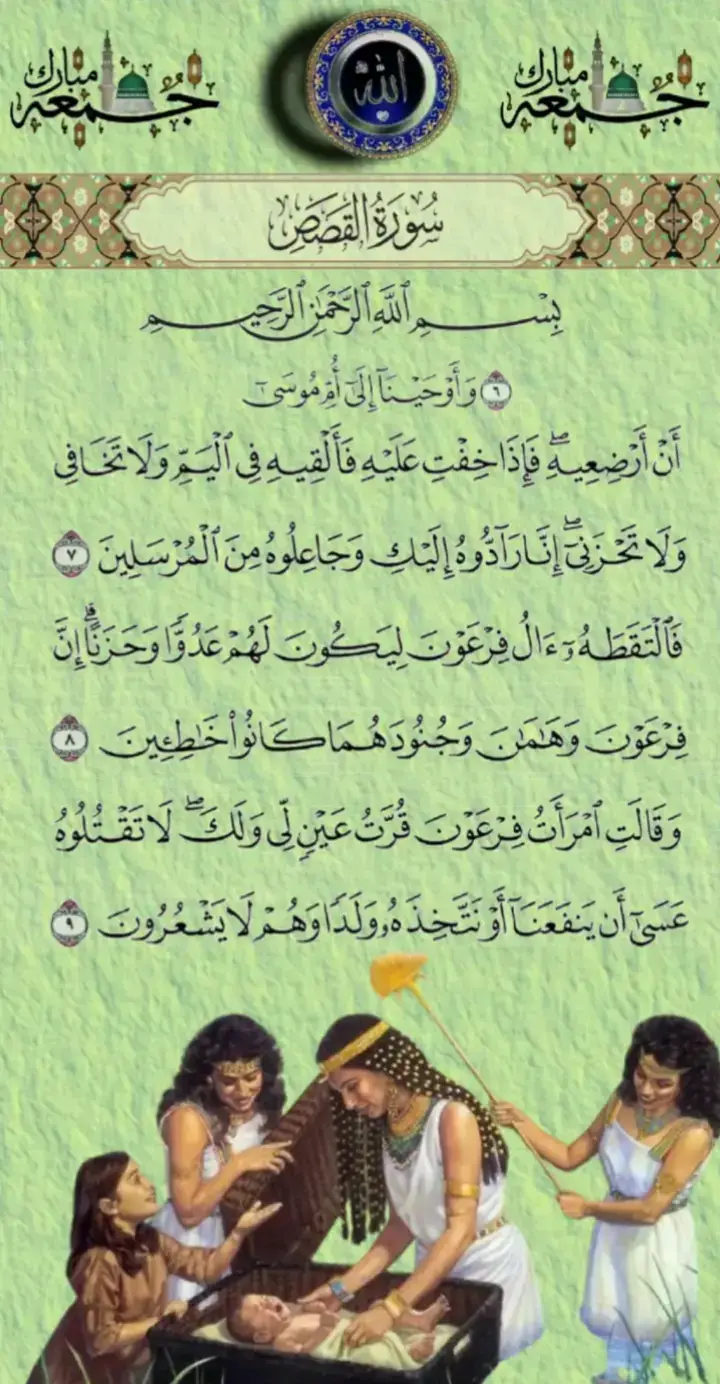 جمعه مبارك
الله
جمعه مبارك
سُورَةُ القَصَصِ
بِسْمِ ٱللَّهِ ٱلرَّحْمَٰنِ ٱلرَّحِيمِ
٦ وَأَوْحَيْنَآ إِلَىٰٓ أُمِّ مُوسَىٰٓ
أَنْ أَرْضِعِيهِۖ فَإِذَا خِفْتِ عَلَيْهِ فَأَلْقِيهِ فِى ٱلْيَمِّ وَلَا تَخَافِى
وَلَا تَحْزَنِىٓۖ إِنَّا رَآدُّوهُ إِلَيْكِ وَجَاعِلُوهُ مِنَ ٱلْمُرْسَلِينَ ٧
فَٱلْتَقَطَهُۥٓ ءَالُ فِرْعَوْنَ لِيَكُونَ لَهُمْ عَدُوًّا وَحَزَنًاۗ إِنَّ
فِرْعَوْنَ وَهَٰمَٰنَ وَجُنُودَهُمَا كَانُوا۟ خَٰطِـِٔينَ ٨
وَقَالَتِ ٱمْرَأَتُ فِرْعَوْنَ قُرَّتُ عَيْنٍ لِّى وَلَكَۖ لَا تَقْتُلُوهُ
عَسَىٰٓ أَن يَنفَعَنَآ أَوْ نَتَّخِذَهُۥ وَلَدًا وَهُمْ لَا يَشْعُرُونَ ٩